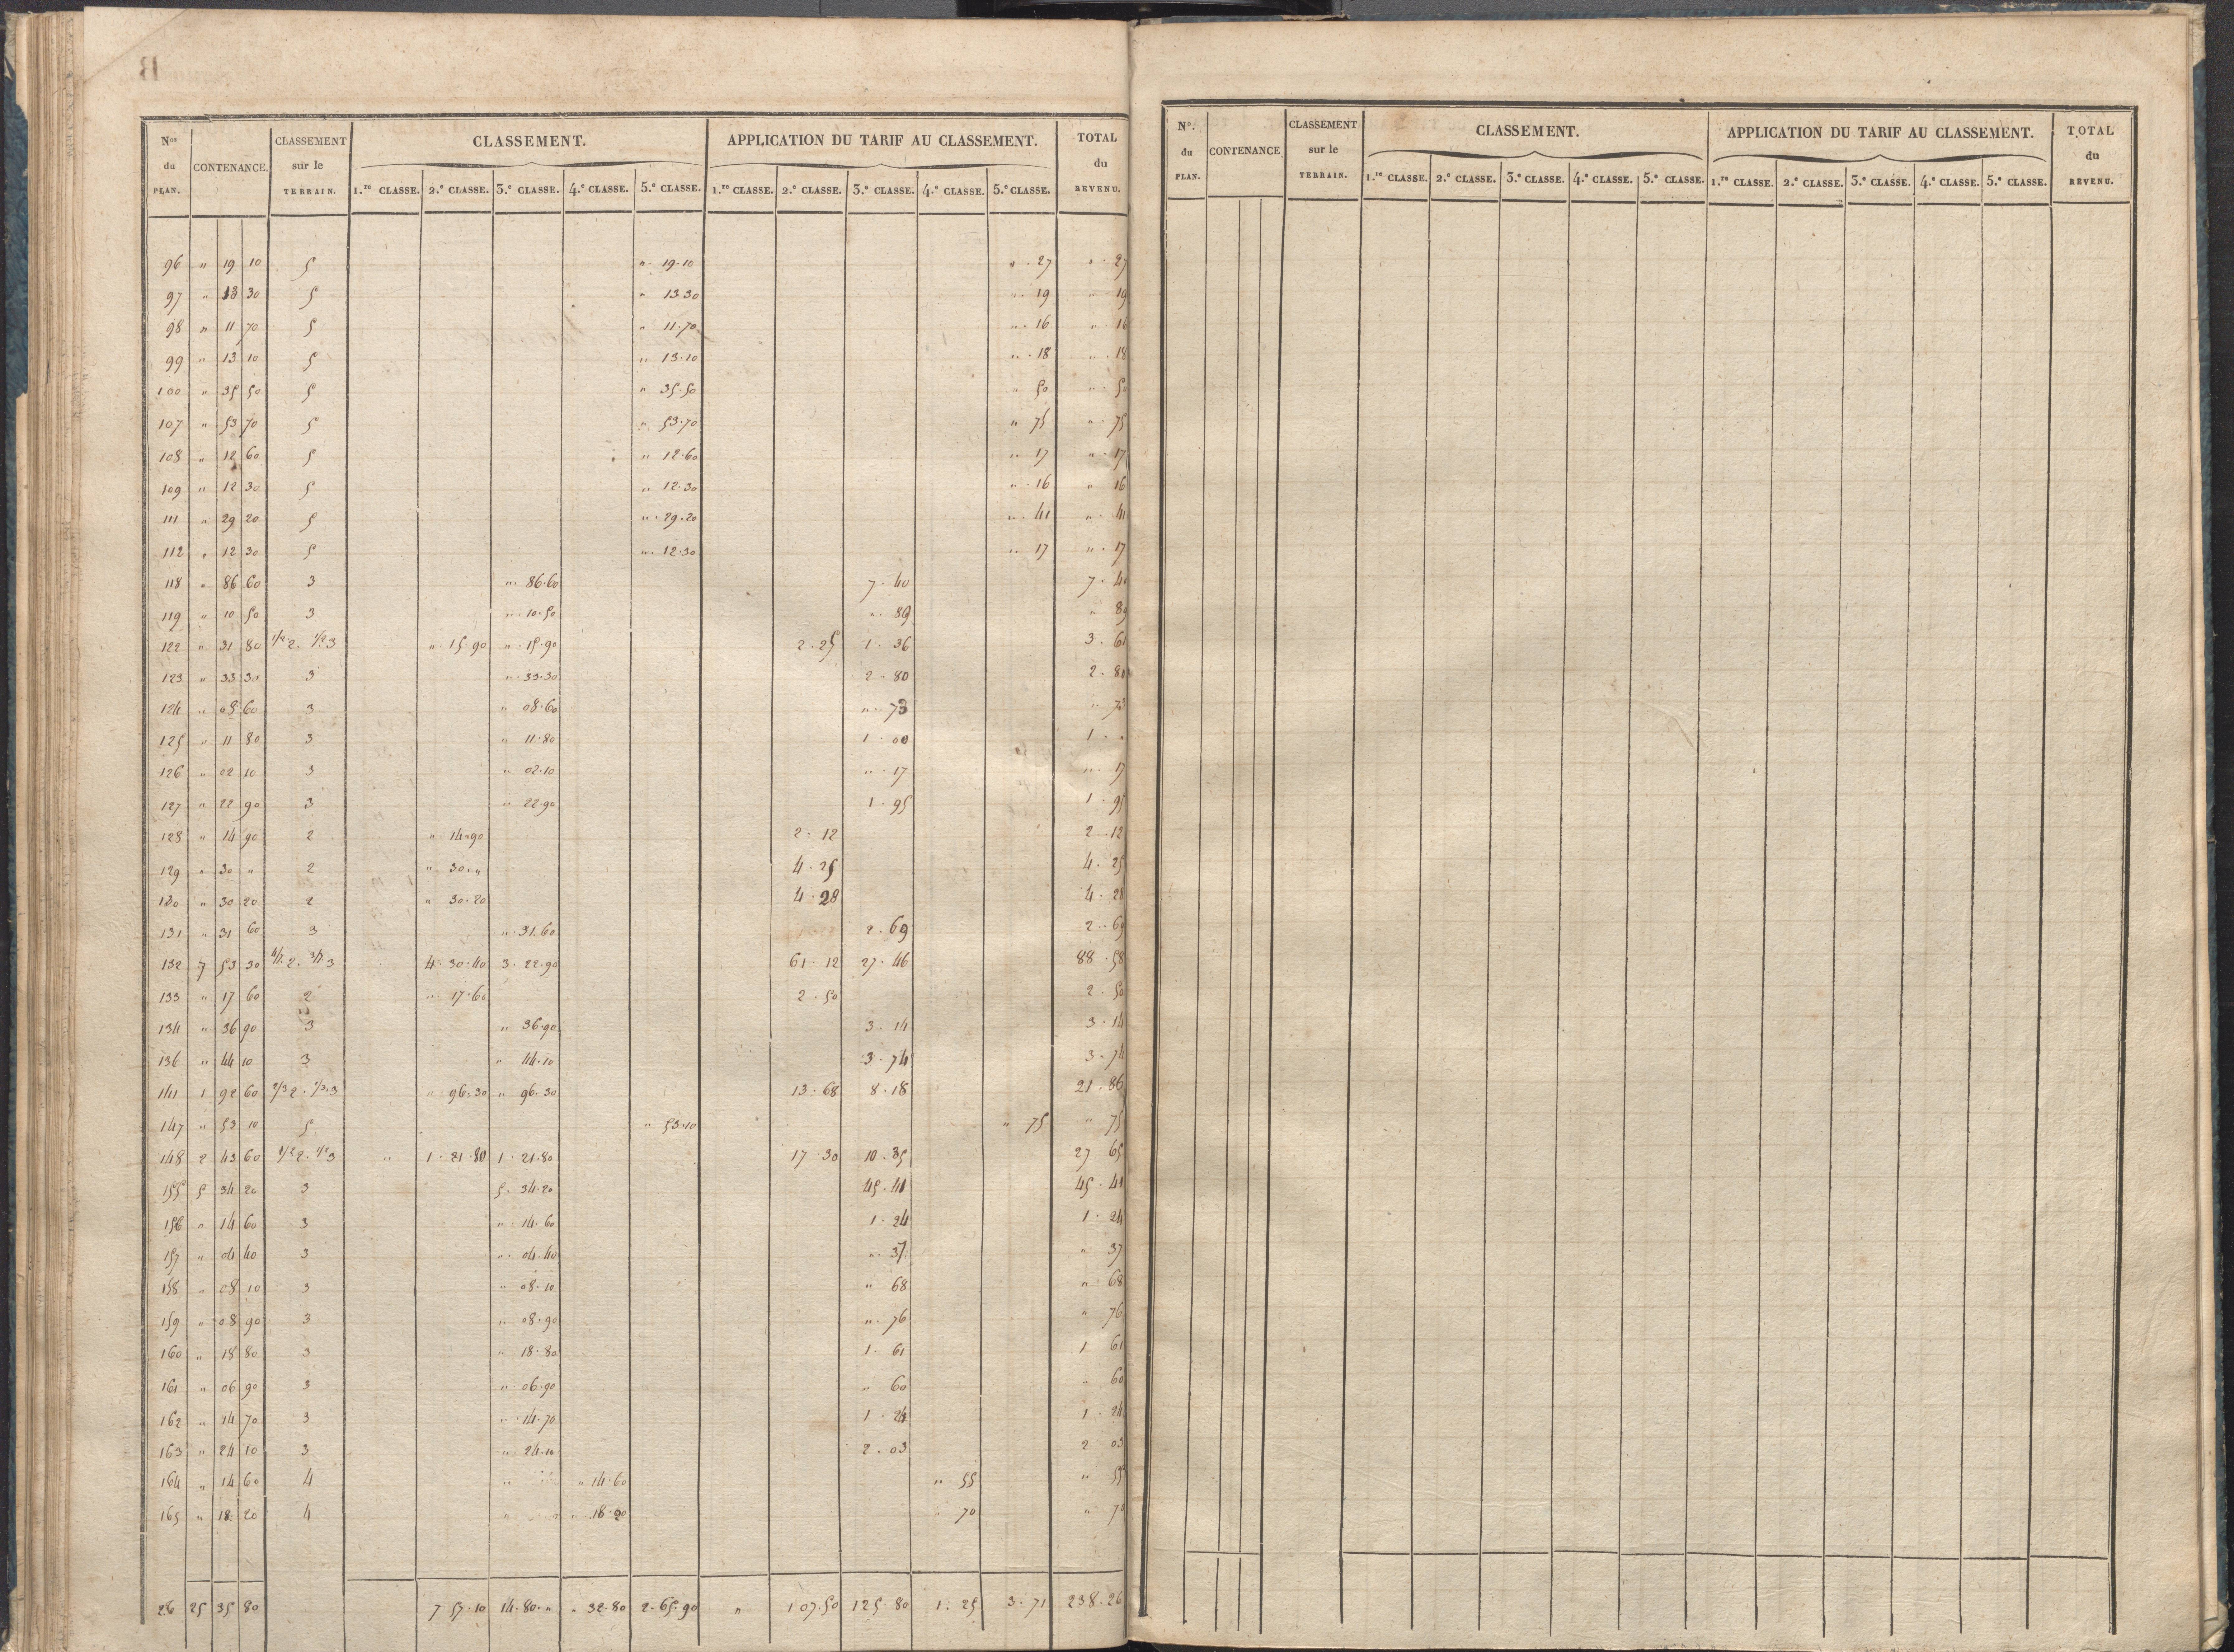 Nos du PLAN. CONTENANCE. CLASSEMENT sur le TERRAIN. CLASSEMENT. APPLICATION DU TARIF AU CLASSEMENT. TOTAL du REVENU.
1.re CLASSE. 2.e CLASSE. 3.e CLASSE. 4.e CLASSE. 5.e CLASSE. 1.re CLASSE. 2.e CLASSE. 3.e CLASSE. 4.e CLASSE. 5.e CLASSE.
96 " 19 10 5 " 19.10 " 27 " 27
97 " 13 30 5 " 13 30 " 19 " 19
98 " 11 70 5 " 11.70 " 16 " 16
99 " 13 10 5 " 13.10 " 18 " 18
100 " 35 50 5 " 35.50 " 50 " 50
107 " 53 70 5 " 53.70 " 75 " 75
108 " 12 60 5 " 12.60 " 17 " 17
109 " 12 30 5 " 12.30 " 16 " 16
111 " 29 20 5 " 29.20 " 41 " 41
112 " 12 30 5 " 12.30 " 17 " 17
118 " 86 60 3 " 86.60 7.40 7.40
119 " 10 50 3 " 10.50 " 89 " 89
122 " 31 80 1/2 2. 1/2 3 " 15.90 " 15.90 2.25 1.36 3.61
123 " 33 30 3 " 33.30 2.80 2.80
124 " 08 60 3 " 08.60 " 73 " 73
125 " 11 80 3 " 11.80 1.00 1. "
126 " 02 10 3 " 02.10 " 17 " 17
127 " 22 90 3 " 22.90 1.95 1.95
128 " 14 90 2 " 14.90 2.12 2.12
129 " 30 " 2 " 30. " 4.25 4.25
130 " 30 20 2 " 30.20 4.28 4.28
131 " 31 60 3 " 31.60 2.69 2.69
132 7 53 30 4/7 2. 3/7 3 4.30.40 3.22.90 61.12 27.46 88.58
133 " 17 60 2 " 17.60 2.50 2.50
134 " 36 90 3 " 36.90 3.14 3.14
136 " 44 10 3 " 44.10 3.74 3.74
141 1 92 60 2/3 2. 1/3 3 " 96.30 " 96.30 13.68 8.18 21.86
147 " 53 10 5 " 53.10 " 75 " 75
148 2 43 60 1/2 2. 1/2 3 " 1.21.80 1.21.80 17.30 10.35 27 65
155 5 34 20 3 5.34.20 45.41 45.41
156 " 14 60 3 " 14.60 1.24 1.24
157 " 04 40 3 " 04.40 " 37 " 37
158 " 08 10 3 " 08.10 " 68 " 68
159 " 08 90 3 " 08.90 " 76 " 76
160 " 18 80 3 " 18.80 1.61 1 61
161 " 06 90 3 " 06.90 " 60 " 60
162 " 14 70 3 " 14.70 1.24 1.24
163 " 24 10 3 " 24.10 2.03 2 03
164 " 14 60 4 " " 14.60 " 55 " 55
165 " 18 20 4 " " 18.20 " 70 " 70
26 25 35 80 7 57.10 14.80. " " 32.80 2.65.90 " 107.50 125.80 1.25 3.71 238.26
No. du PLAN. CONTENANCE CLASSEMENT sur le TERRAIN. CLASSEMENT. APPLICATION DU TARIF AU CLASSEMENT. TOTAL du REVENU.
1.re CLASSE. 2.e CLASSE. 3.e CLASSE. 4.e CLASSE. 5.e CLASSE. 1.re CLASSE. 2.e CLASSE. 3.e CLASSE. 4.e CLASSE. 5.e CLASSE.